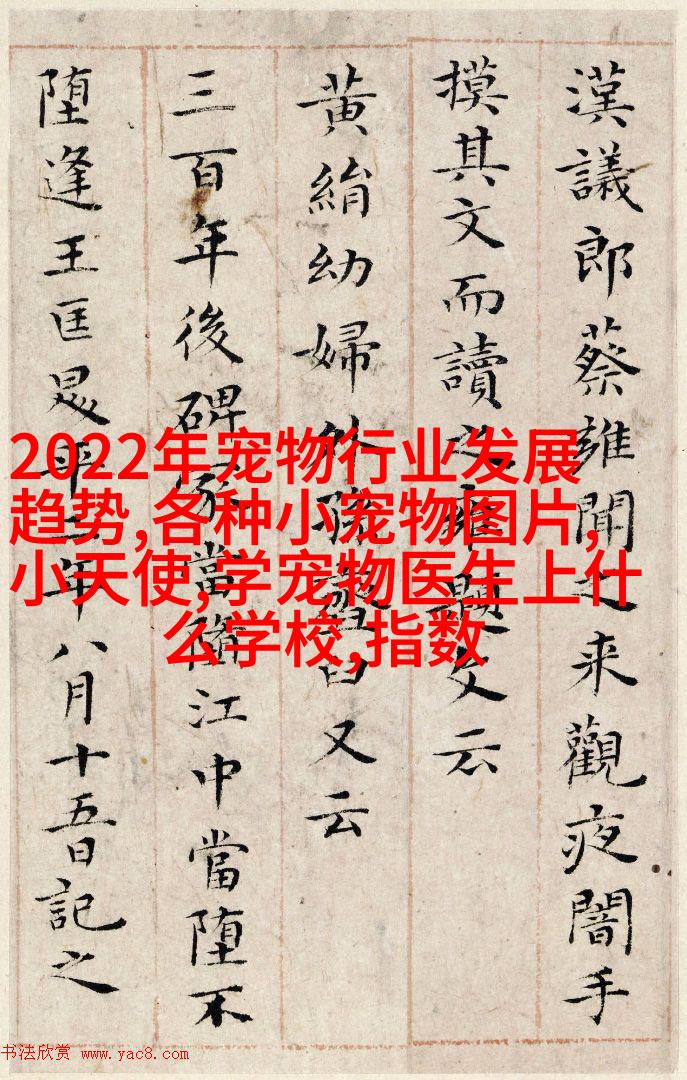 漢議郎蔡雍聞之来觀夜闇手
摸其文而讀之雍題文云
黄絹幼婦外孫䪢臼又云
三百年後碑冢當堕江中當堕不
堕逢王匡 平二年八月十五日記之
2022年宠物行业发展
趋势,各种小宠物图片,
小天使,学宠物医生上什
么学校,指数
书法欣赏 www.yac8.com